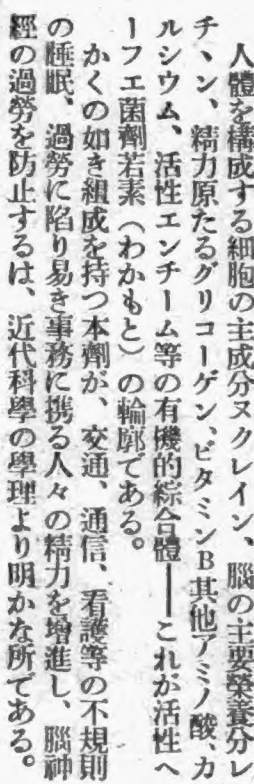 人體を構成する細胞の主成分ヌクレイン、腦の主要榮養分レ
チヽン、精力原たるグリコーゲン、ビタミンB其他アミノ酸、カ
ルシウム、活性エンチーム等の有機的綜合體――これが活性ヘ
ーフエ菌劑若素（わかもと）の輪廓である。
かくの如き組成を持つ本劑が、交通、通信、看護等の不規則
の睡眠、過勞に陷り易き事務に携る人々の精力を增進し、腦神
經の過勞を防止するは、近代科學の學理より明かな所である。